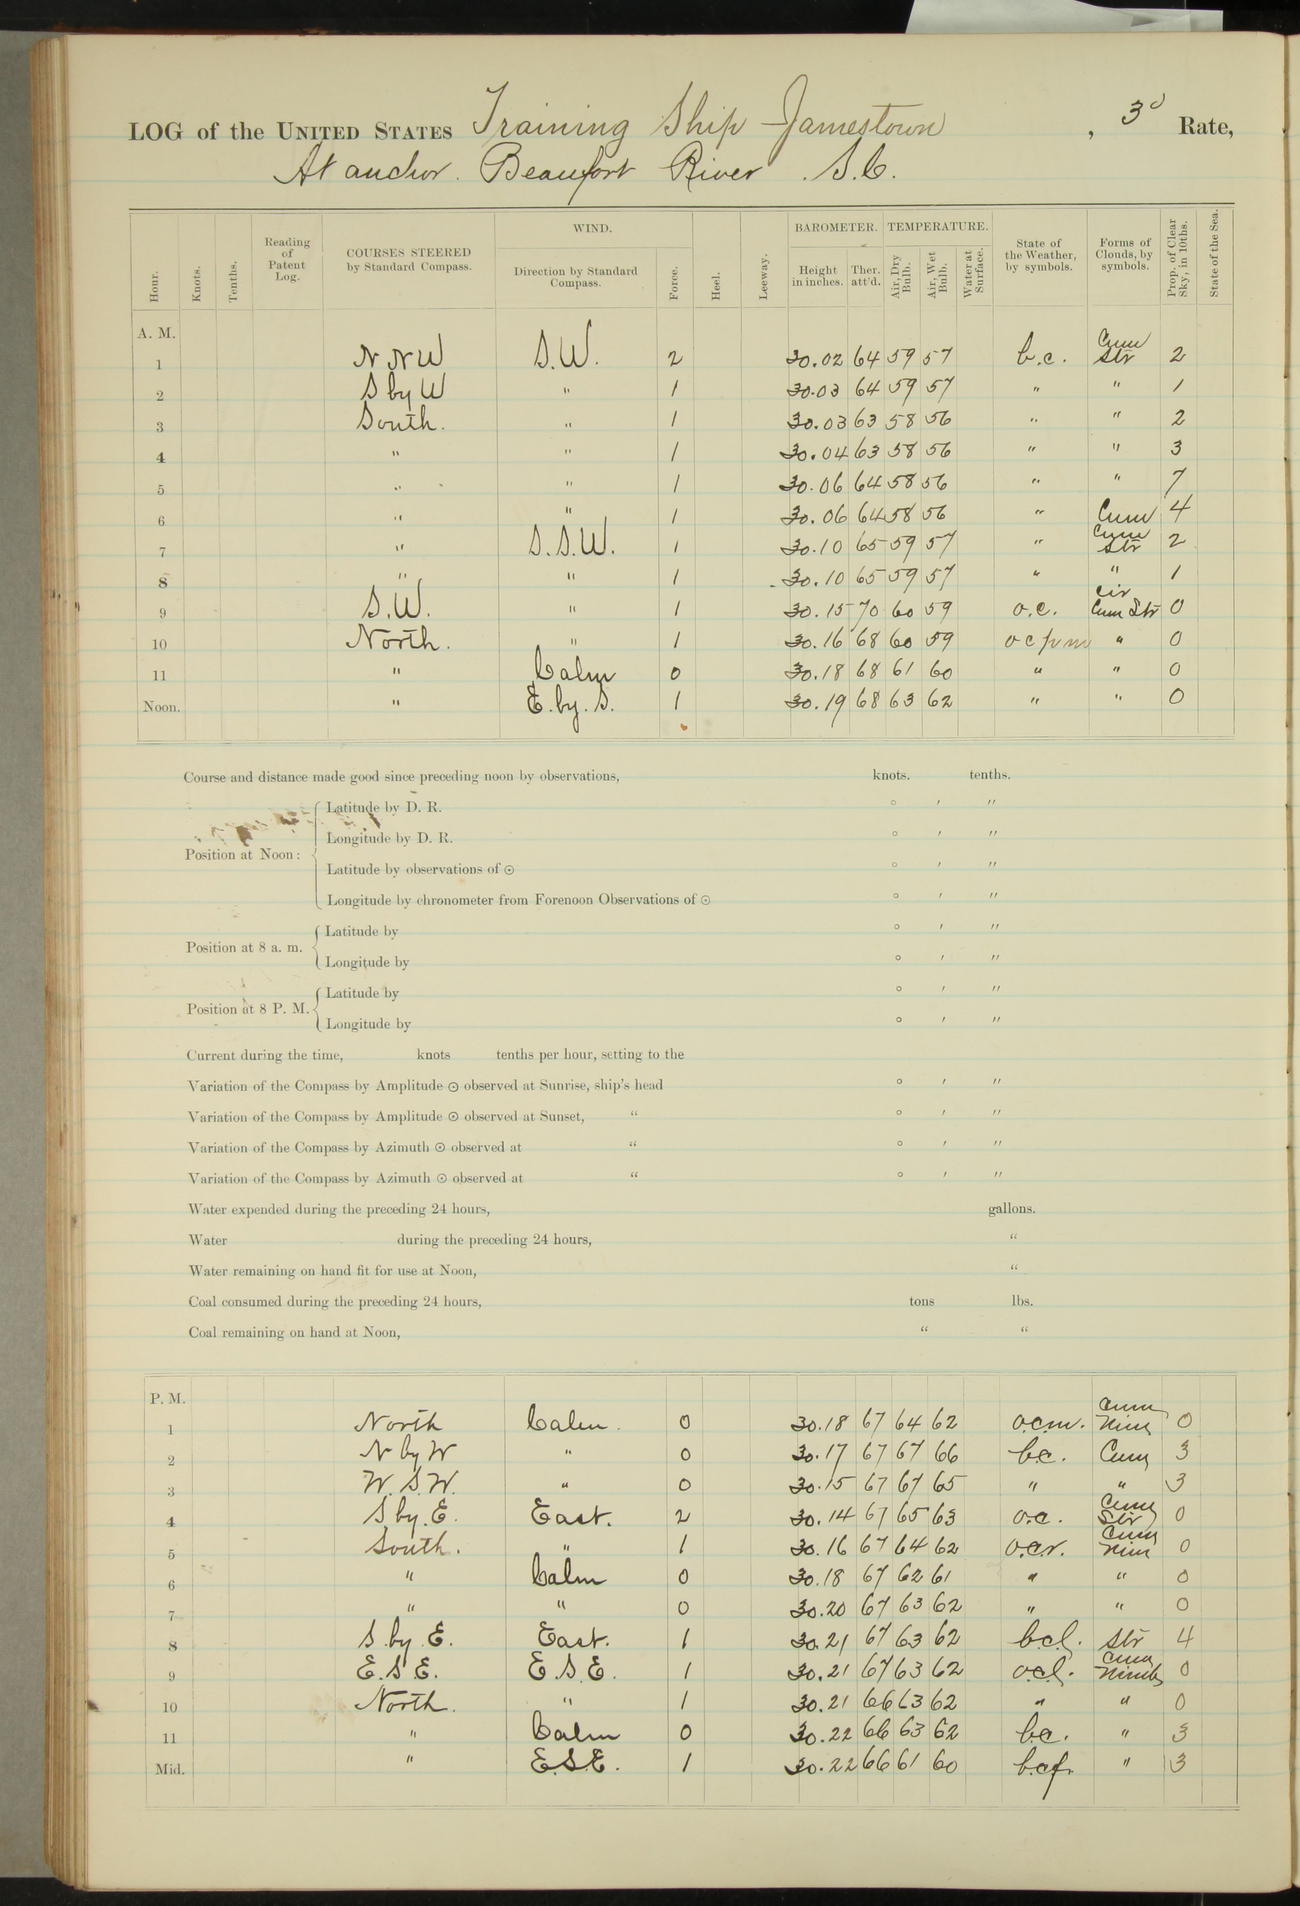 LOG of the UNITED STATES Training Ship Jamestown, 3d Rate,
At anchor. Beaufort River. S.C.
Hour. Knots. Tenths. Reading of Patent Log. COURSES STEERED by Standard Compass. WIND. Direction by Standard Compass. Force. Heel. Leeway. BAROMETER. Height in inches. Ther. att'd. TEMPERATURE. Air, Dry Bulb. Air, Wet Bulb. Water at Surface. State of the Weather, by symbols. Forms of Clouds, by symbols. Prop. of Clear Sky, in 10ths. State of the Sea.
A. M.
1 N N W S.W. 2 30.02 64 59 57 b.c. Cum Str 2
2 S by W " 1 30.03 64 59 57 " " 1
3 South. " 1 30.03 63 58 56 " " 2
4 " " 1 30.04 63 58 56 " " 3
5 " " 1 30.06 64 58 56 " " 7
6 " " 1 30.06 64 58 56 " Cum 4
7 " S.S.W. 1 30.10 65 59 57 " Cum Str 2
8 " " 1 30.10 65 59 57 " " 1
9 S.W. " 1 30.15 70 60 59 o.c. Cir Cum Str 0
10 North. " 1 30.16 68 60 59 o c p m " 0
11 " Calm 0 30.18 68 61 60 " " 0
Noon. " E. by. S. 1 30.19 68 63 62 " " 0
Course and distance made good since preceding noon by observations, knots. tenths.
Position at Noon: Latitude by D. R. ° ′ ″
Longitude by D. R. ° ′ ″
Latitude by observations of ☉ ° ′ ″
Longitude by chronometer from Forenoon Observations of ☉ ° ′ ″
Position at 8 a. m. Latitude by ° ′ ″
Longitude by ° ′ ″
Position at 8 P. M. Latitude by ° ′ ″
Longitude by ° ′ ″
Current during the time, knots tenths per hour, setting to the
Variation of the Compass by Amplitude ☉ observed at Sunrise, ship's head ° ′ ″
Variation of the Compass by Amplitude ☉ observed at Sunset, “ ° ′ ″
Variation of the Compass by Azimuth ☉ observed at “ ° ′ ″
Variation of the Compass by Azimuth ☉ observed at “ ° ′ ″
Water expended during the preceding 24 hours, gallons.
Water during the preceding 24 hours, “
Water remaining on hand fit for use at Noon, “
Coal consumed during the preceding 24 hours, tons lbs.
Coal remaining on hand at Noon, “ “
P. M.
1 North Calm. 0 30.18 67 64 62 o.c.m. Cum Nim 0
2 N by W " 0 30.17 67 67 66 b.c. Cum 3
3 W.S.W. " 0 30.15 67 67 65 " " 3
4 S by. E. East. 2 30.14 67 65 63 o.c. Cum Str 0
5 South. " 1 30.16 67 64 62 o.c.r. Cum Nim 0
6 " Calm 0 30.18 67 62 61 " " 0
7 " " 0 30.20 67 63 62 " " 0
8 S. by. E. East. 1 30.21 67 63 62 b.c.l. Str 4
9 E.S.E. E.S.E. 1 30.21 67 63 62 o.c.l. Cum Nimb 0
10 North. " 1 30.21 66 63 62 " " 0
11 " Calm 0 30.22 66 63 62 b.c. " 3
Mid. " E.S.E. 1 30.22 66 61 60 b.c.f. " 3